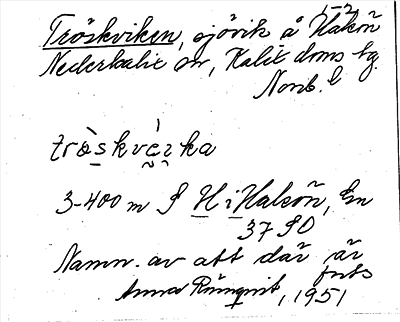 Tröskviken, sjövik å Hakoñ
Nederkalix sn, Kalix doms hg
Norrb. l
tròskvèrka
3-400 m S H i Hakoñ, En
37 SO
Namn. av att där är
Anna Rönnqvist, 1951